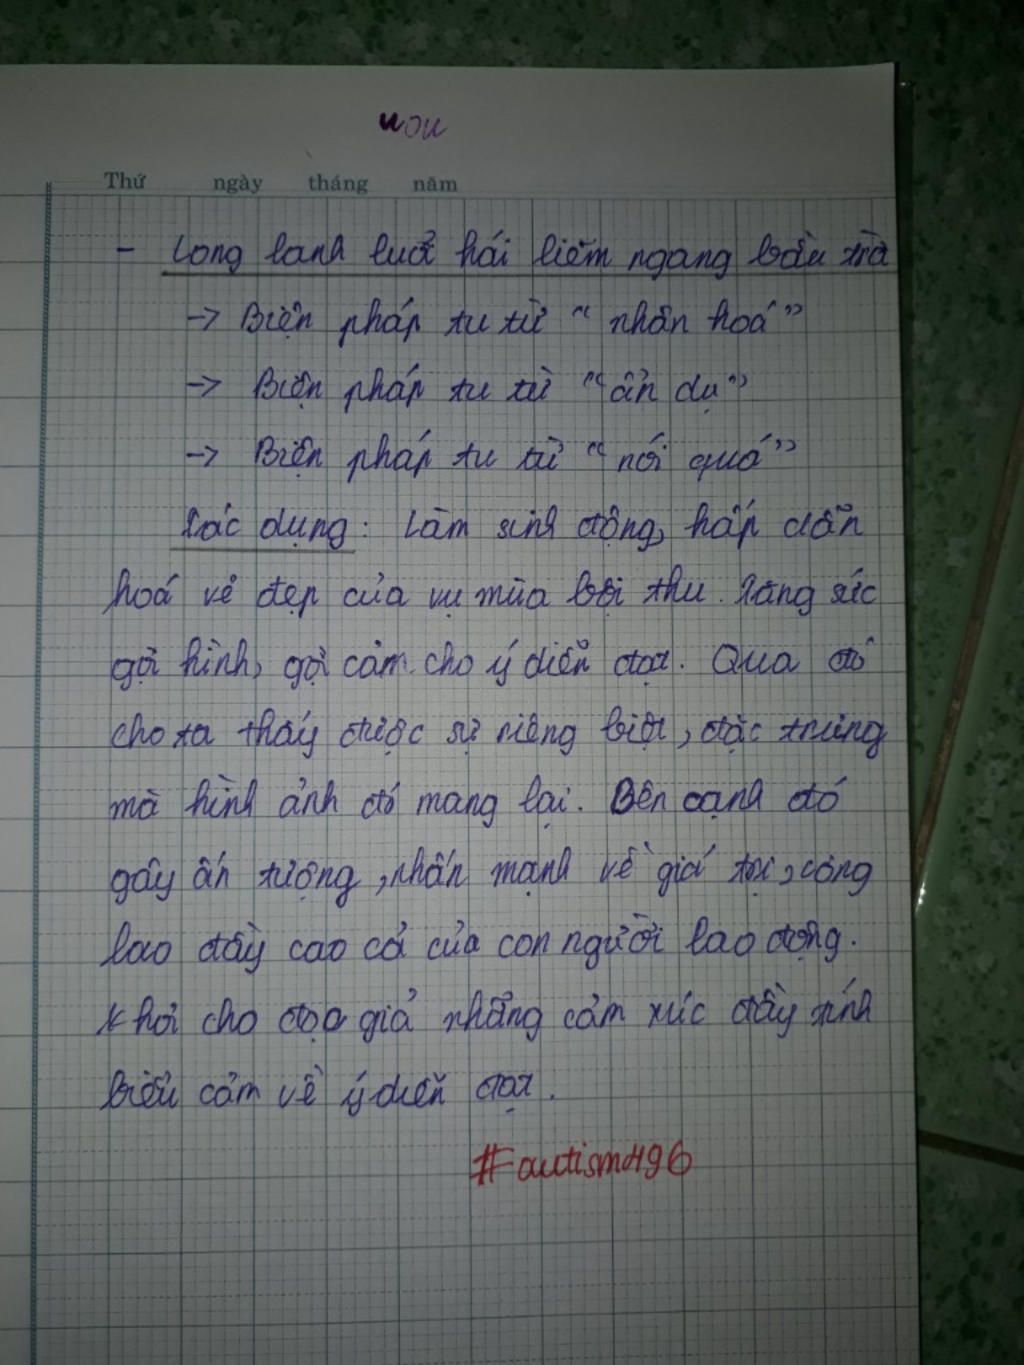 wou
Thứ ngày tháng năm
- Long lanh lưỡi hái liếm ngang bầu trời
→ Biện pháp tu từ “nhân hoá”
→ Biện pháp tu từ “ẩn dụ”
→ Biện pháp tu từ “nói quá”
Tác dụng: Làm sinh động, hấp dẫn
hoá vẻ đẹp của vụ mùa bội thu. Tăng sức
gợi hình, gợi cảm cho ý diễn đạt. Qua đó
cho ta thấy được sự riêng biệt, đặc trưng
mà hình ảnh đó mang lại. Bên cạnh đó
gây ấn tượng, nhấn mạnh về giá trị, công
lao đầy cao cả của con người lao động.
Khơi cho độc giả những cảm xúc đầy tính
biểu cảm về ý diễn đạt.
#autism496